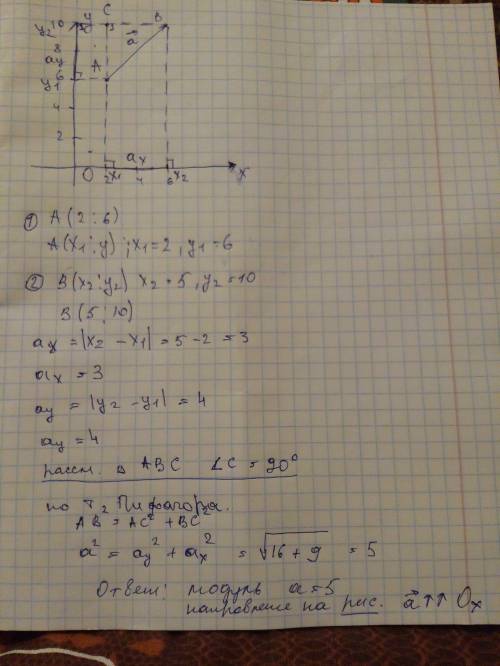 y₂ 10 y C B
8 a⃗
ay
y₁ 6 A
4
2
O 2 x₁ ax 4 6 x₂ x
① A (2 ; 6)
A(x₁ ; y) ; x₁ = 2 , y₁ = 6
② B(x₂ ; y₂) x₂ = 5 , y₂ = 10
B (5 ; 10)
ax = |x₂ - x₁| = 5 - 2 = 3
ax = 3
ay = |y₂ - y₁| = 4
ay = 4
рассм. △ ABC ∠C = 90°
по т. Пифагора.
AB² = AC² + BC²
a² = ay² + ax² = √16 + 9 = 5
Ответ: модуль a = 5
направление на рис. a⃗ ↑↑ Ox